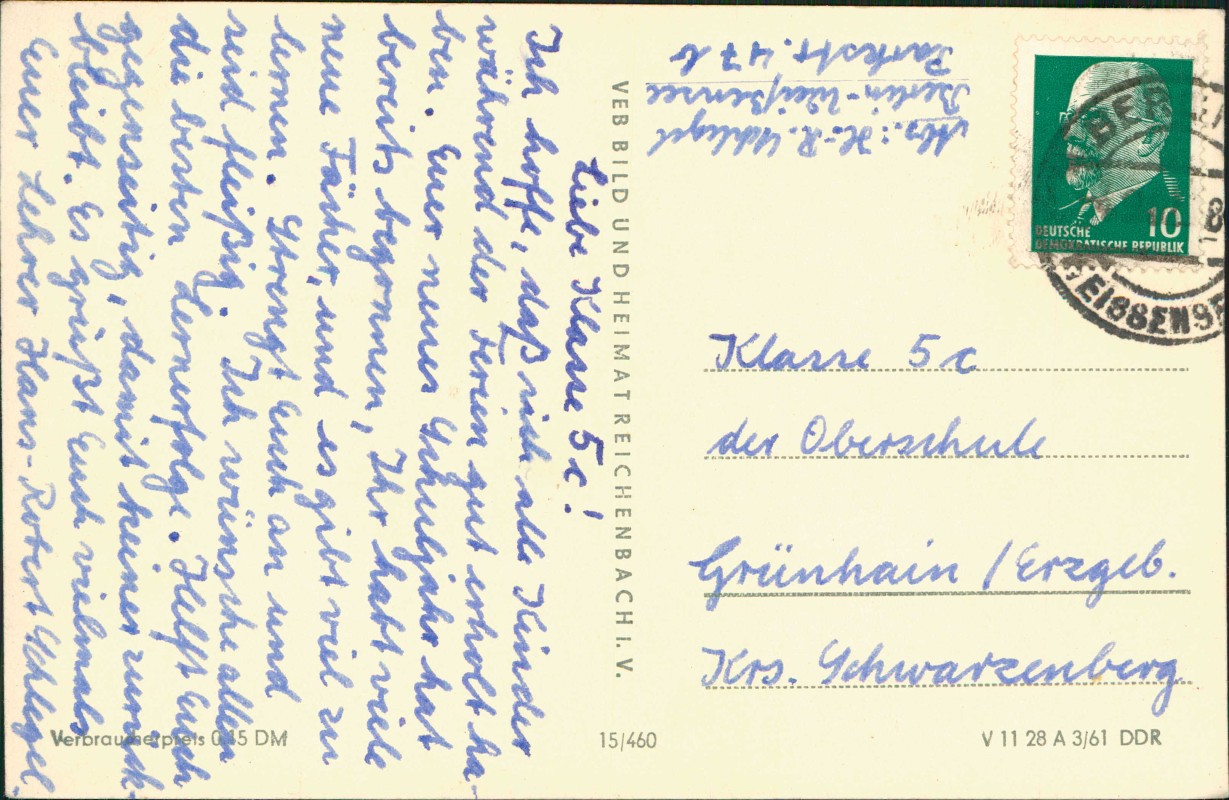 Liebe Klasse 5c!
Ich hoffe, daß sich alle Kinder
während der Ferien gut erholt ha-
ben. Euer neues Schuljahr hat
bereits begonnen, Ihr habt viele
neue Fächer, und es gibt viel zu
lernen. Strengt Euch an und
seid fleißig. Ich wünsche allen
die besten Lernerfolge. Helft Euch
gegenseitig, damit keiner zurück-
bleibt. Es grüßt Euch vielmals
Euer Lehrer Hans-Robert Schlegel.
VEB BILD UND HEIMAT REICHENBACH I. V.
Abs.: H.-R. Schlegel
Berlin-Weißensee
Parkstr. 47 b
10
DEUTSCHE
DEMOKRATISCHE REPUBLIK
BERLIN
8
WEISSENSEE
Klasse 5c
der Oberschule
Grünhain / Erzgeb.
Krs. Schwarzenberg
Verbraucherpreis 0,15 DM
15/460
V 11 28 A 3/61 DDR